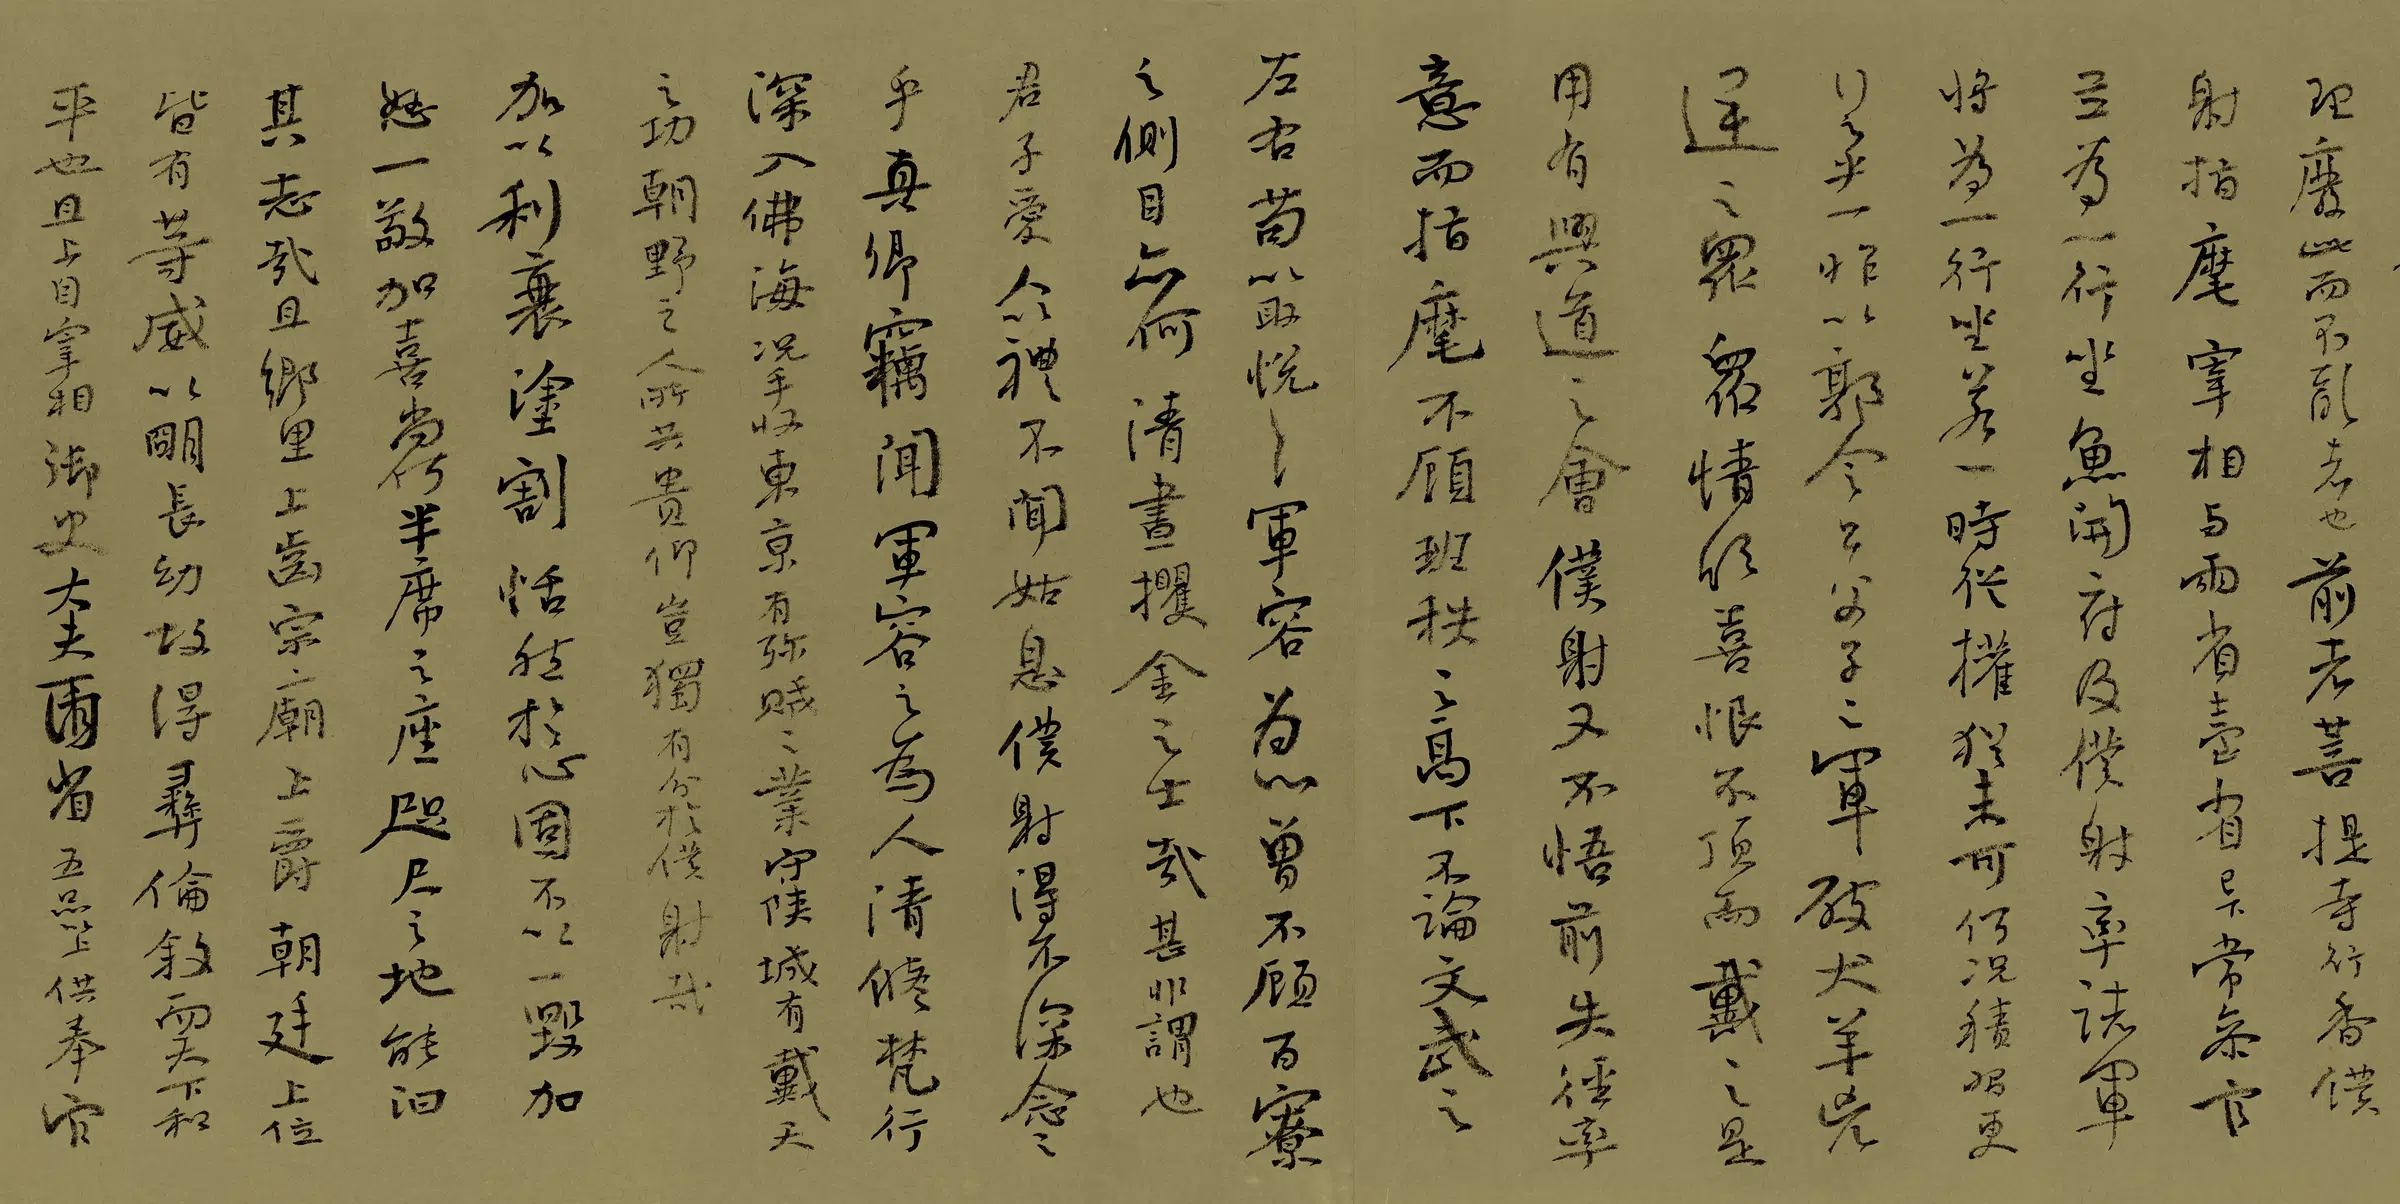 理廢此而不亂者也前者菩提寺行香僕
射指麾宰相与兩省臺省已下常參官
並為一行坐魚開府及僕射率諸軍
將為一行坐若一時從權猶未可何況積習更
行之乎一昨以郭令公父子之軍破犬羊兇
逆之眾眾情欣喜恨不頂而戴之是
用有興道之會僕射又不悟前失徑率
意而指麾不顧班秩之高下不論文武之
左右苟以取悅軍容為心曾不顧百寮
之側目亦何清晝攫金之士哉甚非謂也
君子愛人以禮不聞姑息僕射得不深念之
乎真卿竊聞軍容之為人清修梵行
深入佛海況乎收東京有殄賊之業守陝城有戴天
之功朝野之人所共貴仰豈獨有分於僕射哉
加以利衰塗割恬然於心固不以一毀加
怒一敬加喜尚何半席之座咫尺之地能汩
其志哉且鄉里上齒宗廟上爵朝廷上位
皆有等威以明長幼故得彝倫敘而天下和
平也且上自宰相御史大夫兩省五品以上供奉官